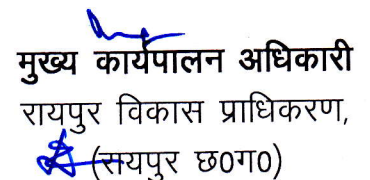 मुख्य कार्यपालन अधिकारी
रायपुर विकास प्राधिकरण,
(रायपुर छ0ग0)